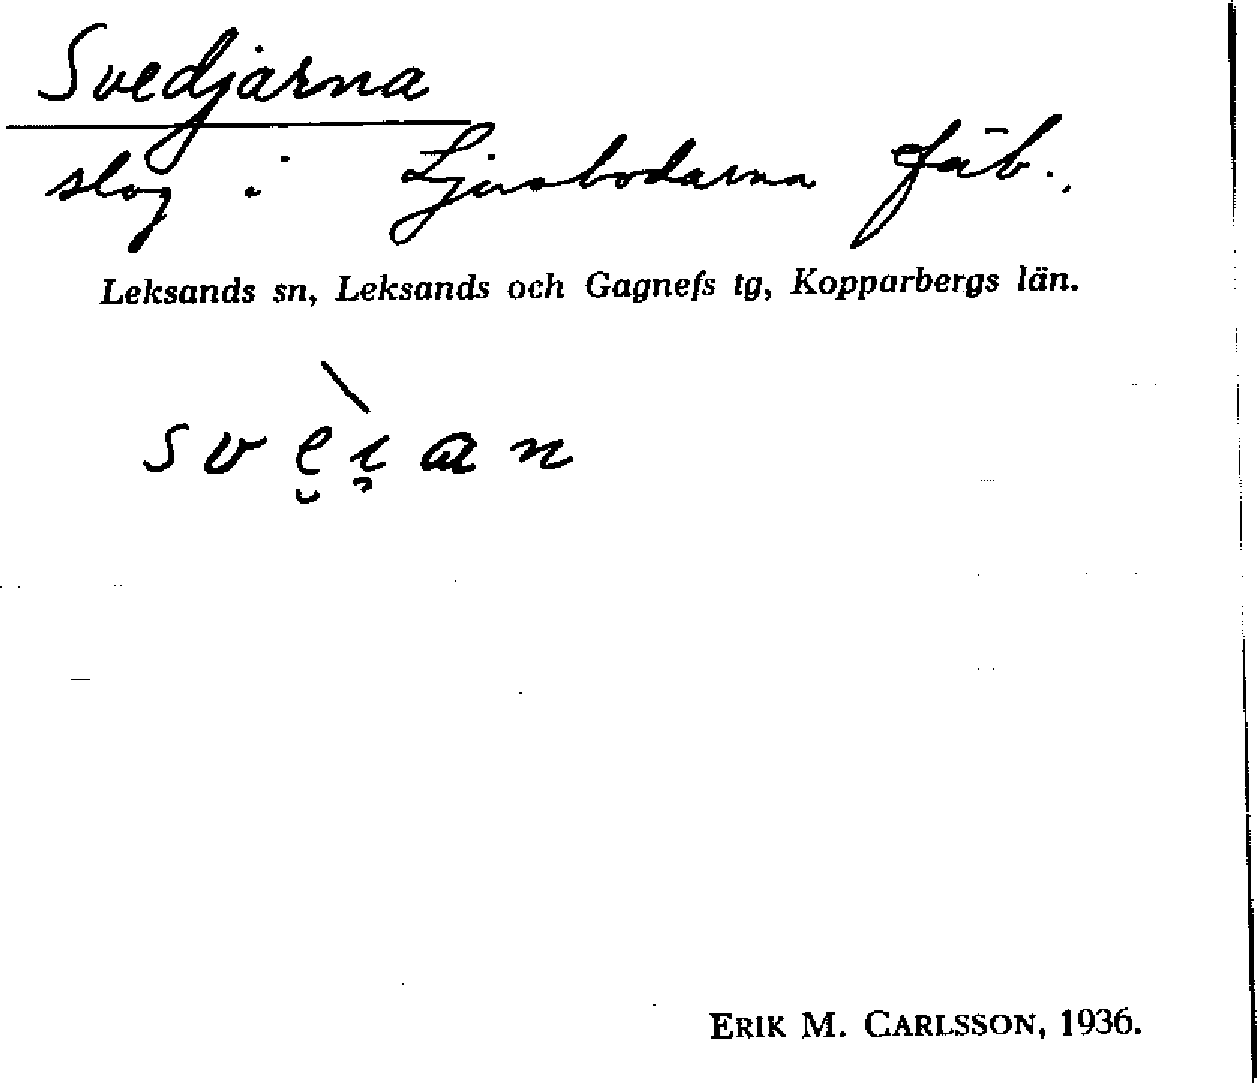 Svedjarna
slog i Ljusbodarna fäb.,
Leksands sn, Leksands och Gagnefs tg, Kopparbergs län.
sve̮ì̯an
ERIK M. CARLSSON, 1936.